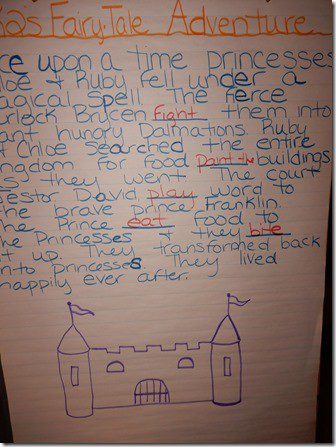 Fairy Tale Adventure
upon a time princesses
+ Ruby fell under a
spell. The fierce
Brycen fight them into
hungry Dalmations. Ruby
Chloe searched the entire
for food paint the buildings
they went. The court
David play word to
the brave prince Franklin.
The Prince eat food to
the Princesses + they bite
it up. They transformed back
into princesses. They lived
happily ever after.